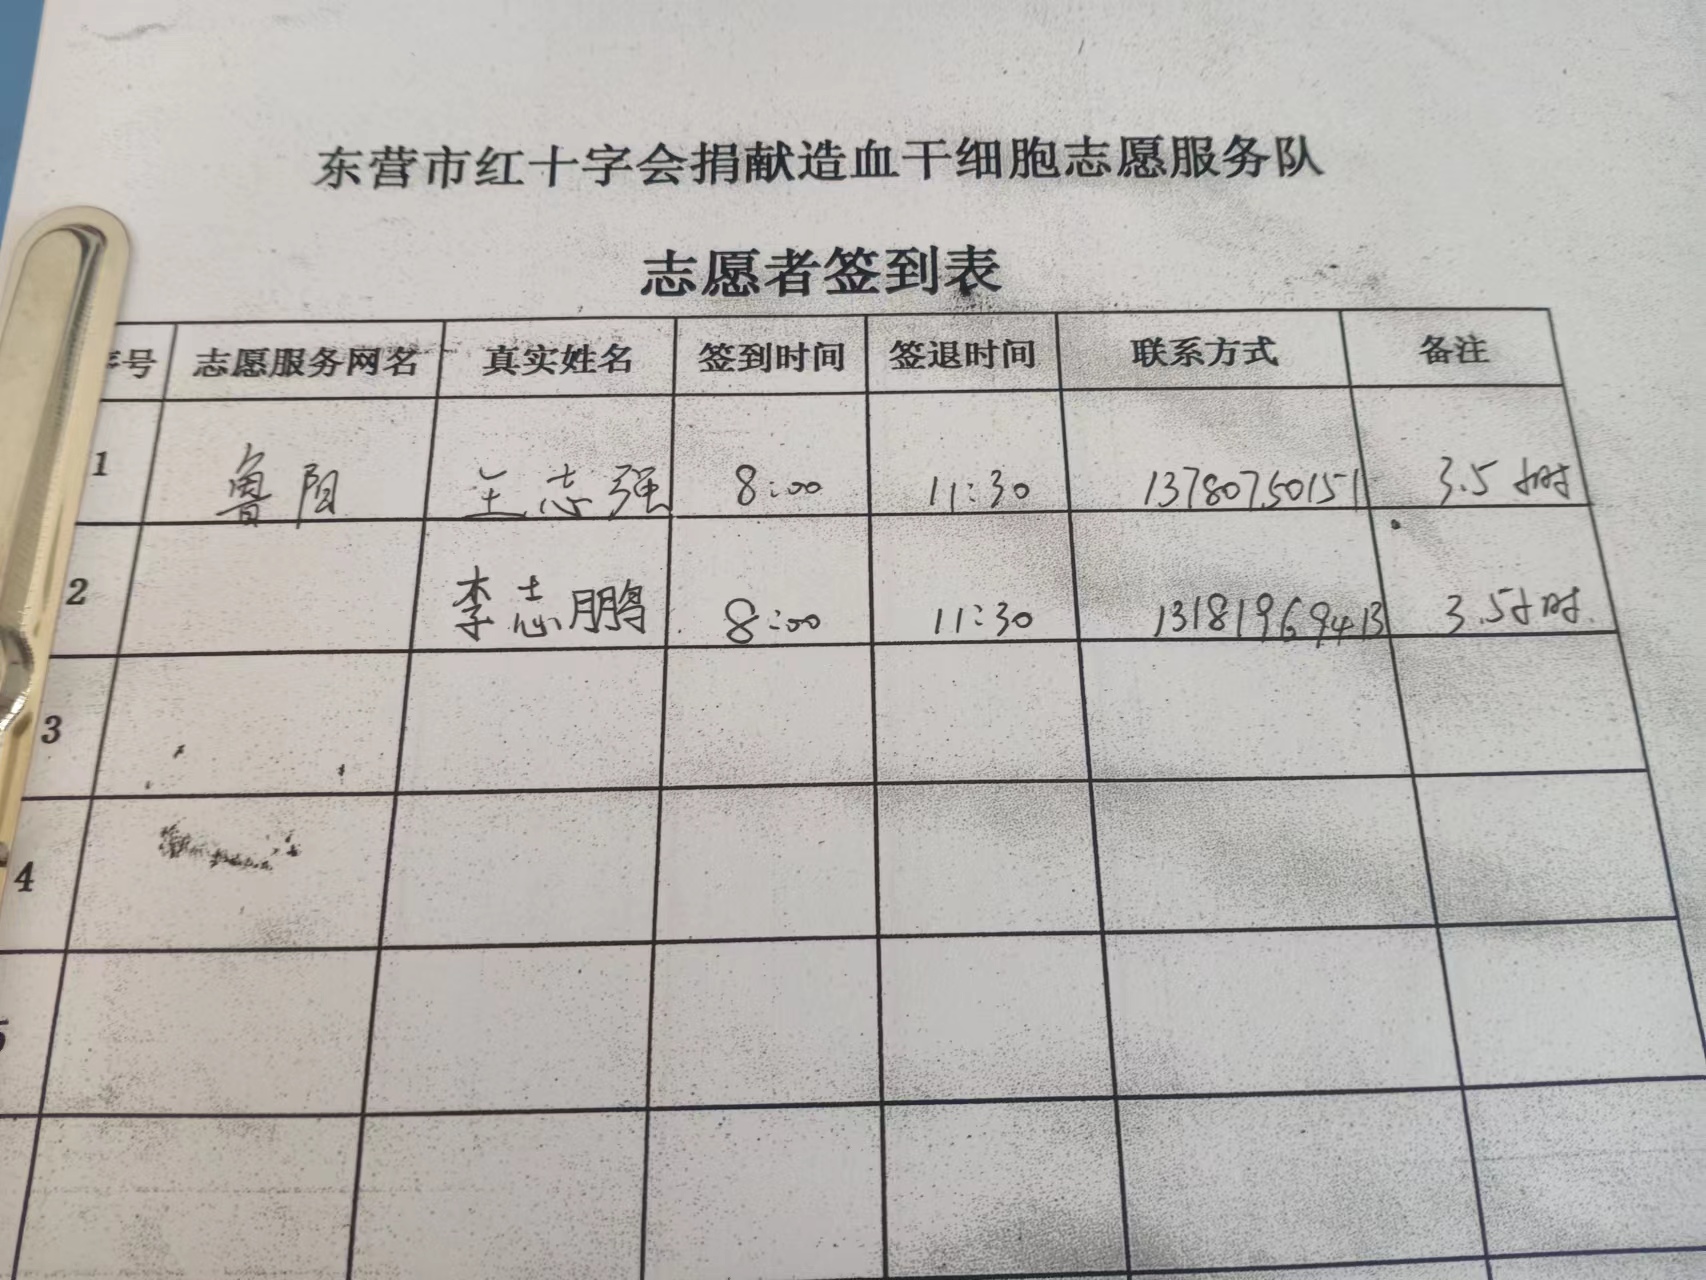 东营市红十字会捐献造血干细胞志愿服务队
志愿者签到表
序号 志愿服务网名 真实姓名 签到时间 签退时间 联系方式 备注
1 鲁阳 王志强 8:00 11:30 13780750151 3.5小时
2 李志鹏 8:00 11:30 13181969413 3.5小时.
3
4
5